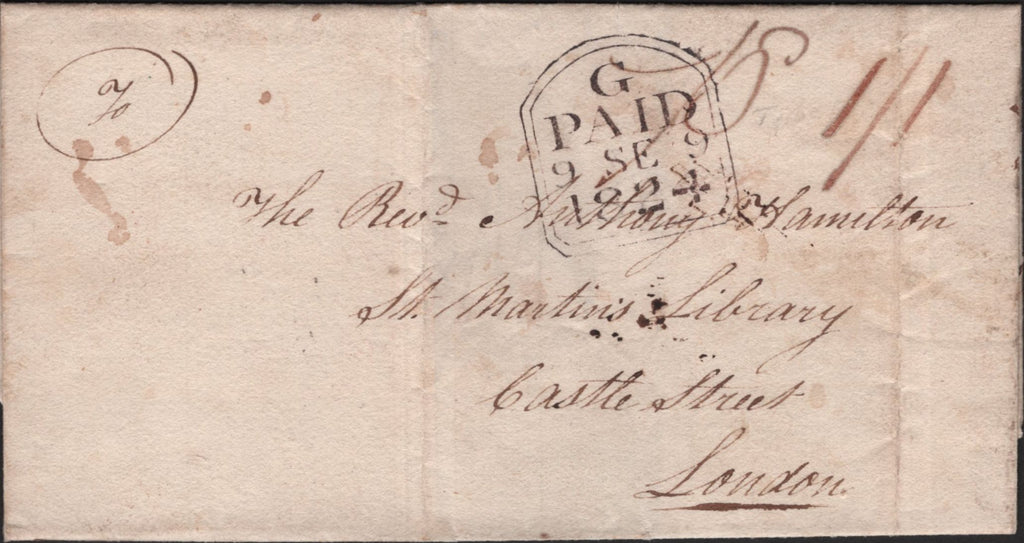 G
PAID
9 SE 9
1824
1/1
The Revd. Anthony Hamilton
St. Martins Library
Castle Street
London